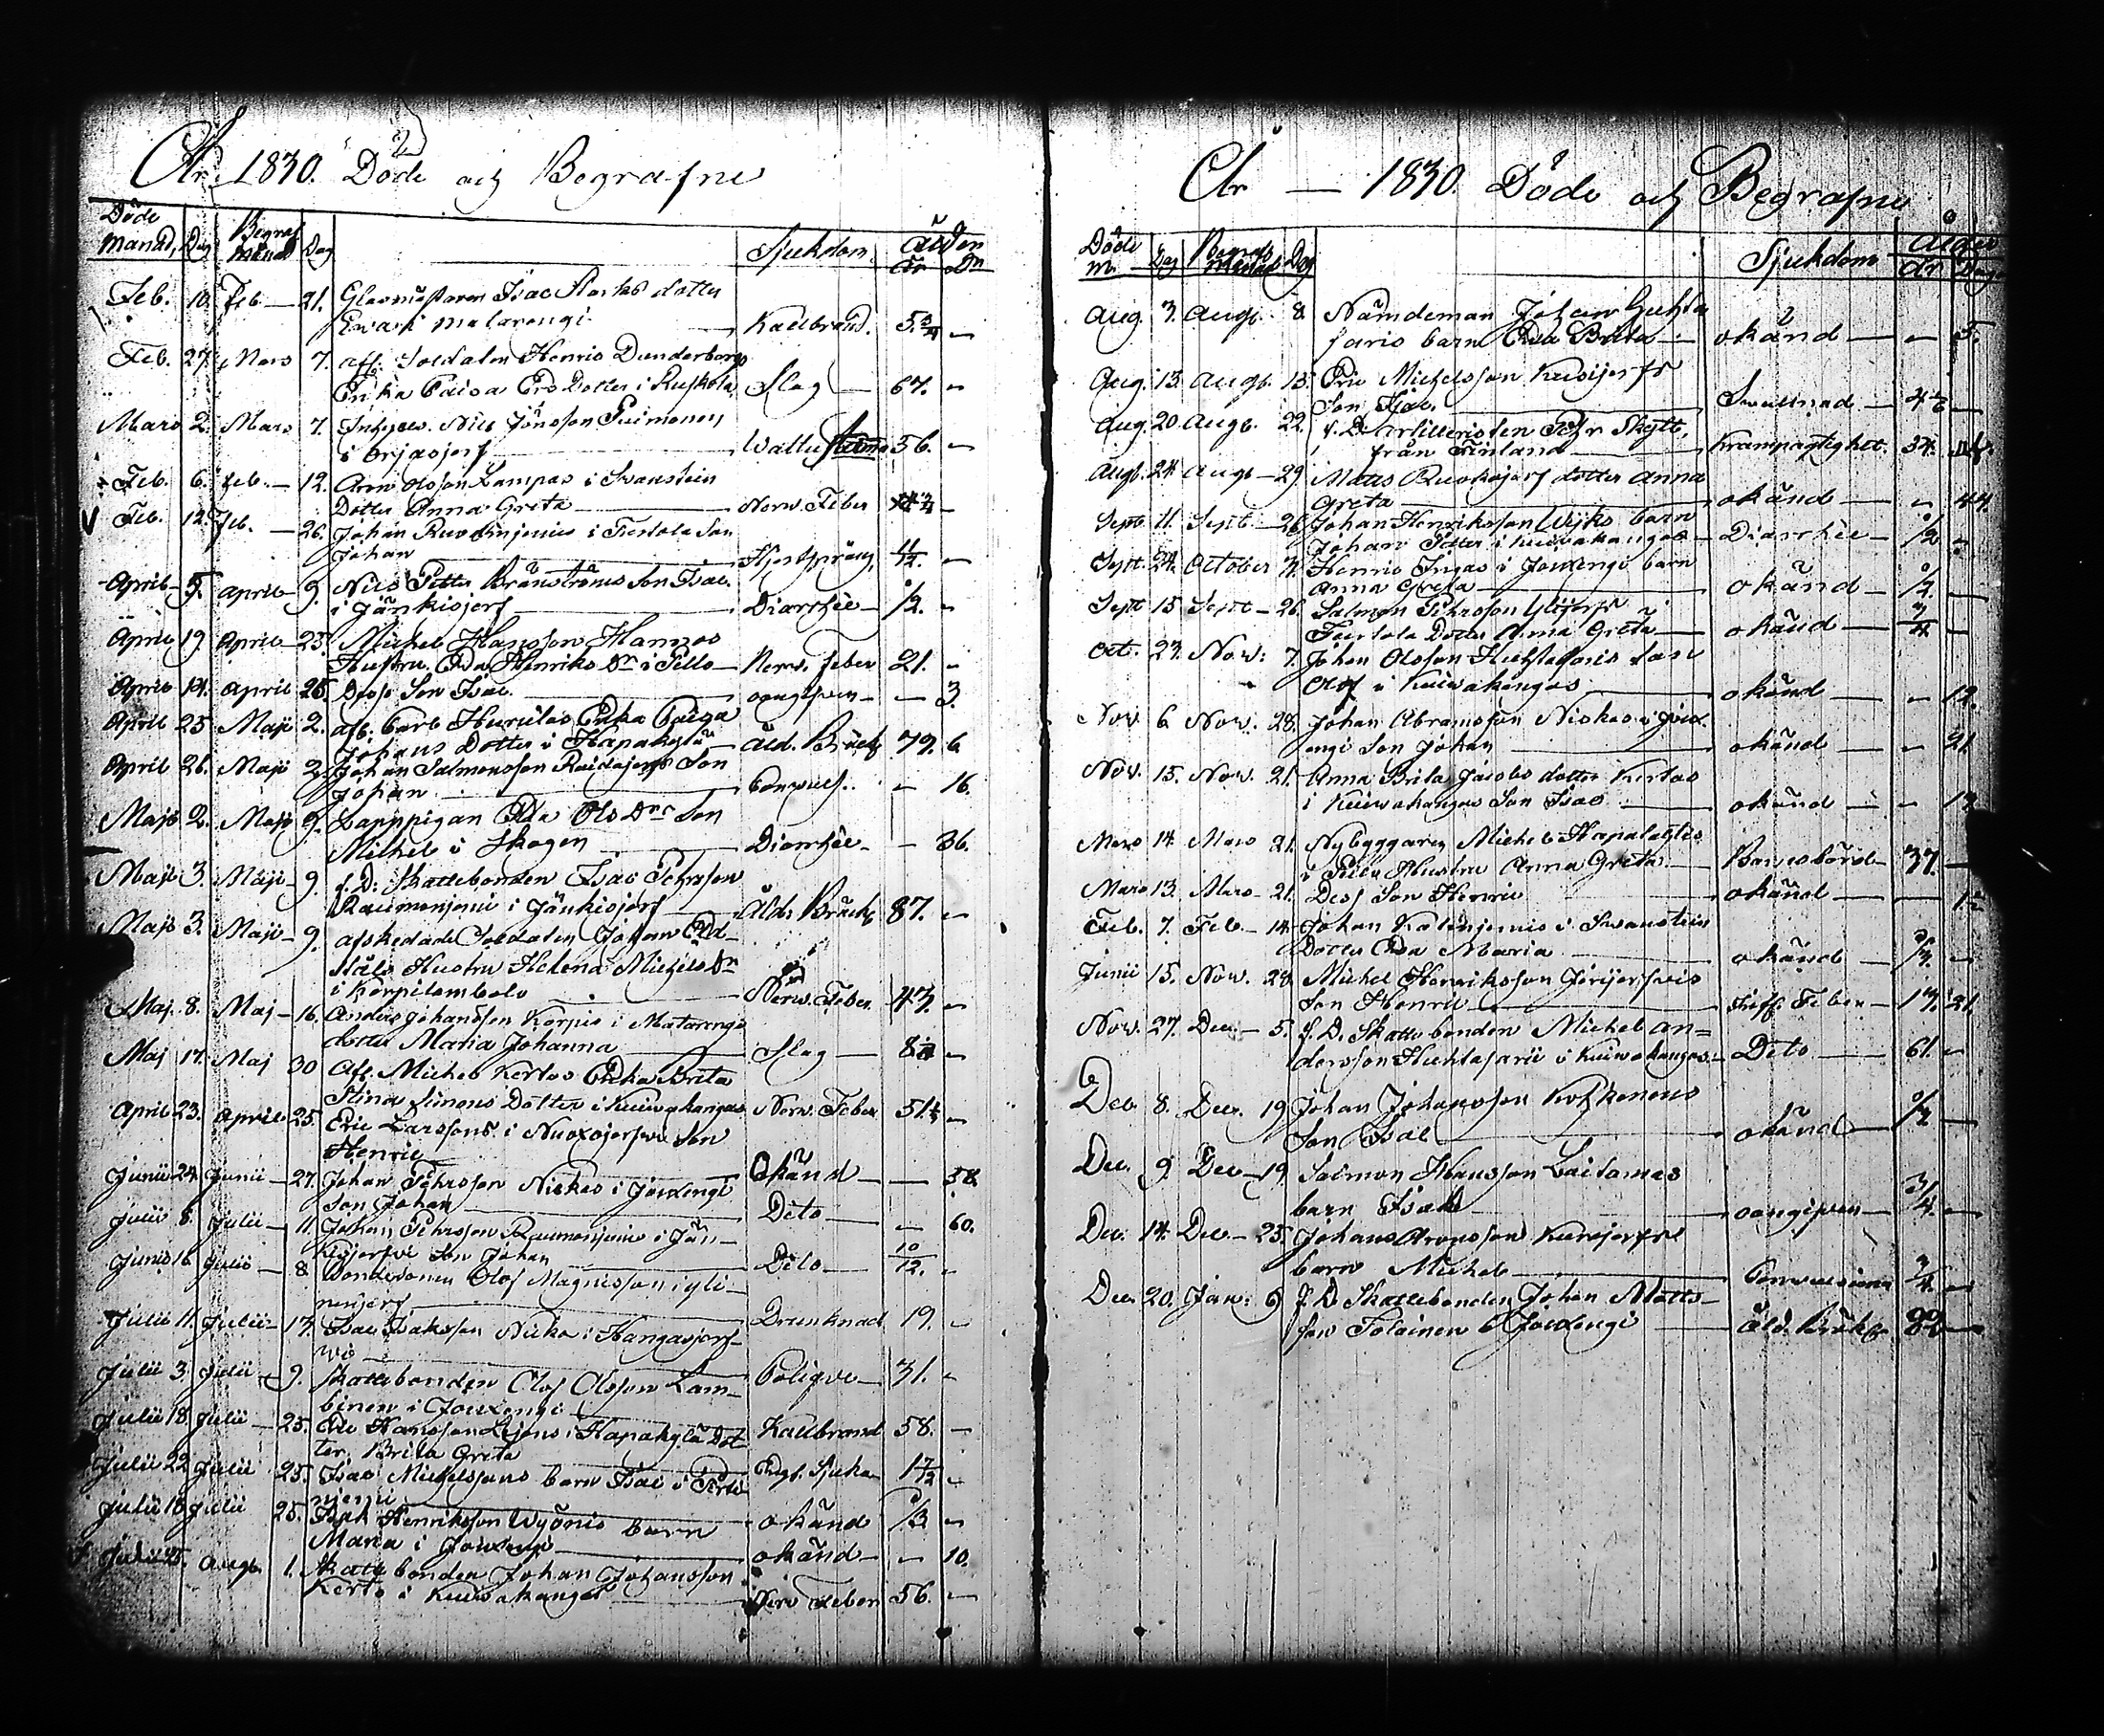 År 1830. Döde och Begrafne
Döde Månad, Dag Begraf Månad Dag Sjukdom. Ålder År Dr
Feb. 10. Feb. — 21. Glasmästaren Isac Starks dotter
Eva i Matarengi — Kallbrand. 5 3/4 —
Feb. 27. Mars 7. afsk. Soldaten Henric Dunderbergs
Erika Caisa Ers Dotter i Ruskola Slag — 67. —
Mars 2. Mars 7. Inhyses. Nils Jönsson
i Orjasjerf — Wattu 56. —
Feb. 6. Feb. — 12. Aron Olsson Lampas i Svanstein
Dotter Anna Greta — Nerv. Feber —
Feb. 12. Feb. — 26. Johan i Turtola Son
Johan — —
April — 5. April — 9. Nils Petter Brännströms Son Isac
i Jänkisjerf — Diarrhée — 1/2. —
April 19. April — 25. Michel Hansson Hannos
Hustru Eva Henriks Dr i Pello — Nerv. feber 21. —
April 14. April 25. Dess Son Isac. — oangifven — — 3.
April 25 Maji 2. afl. Carl Huruilas Erika Caisa
Johans Dotter i Hapakylä — Åld. Bräck 79. 6.
April 26. Maji 2. Johan Salmonsson Raidajerfs Son
Johan — Convuls. — 16.
Maji 2. Maji 9. Lapppigan Eva Ols Drs Son
Michel i Skogen — Diarrhée — — 36.
Maji 3. Maji — 9. f. D. Skattebonden Isac Pehrsson
Raumonjemi i Jänkisjerf — Åld. Bräck 87. —
Maji 3. Maji — 9. afskedade Soldaten Johan Eld-
ståls Hustru Helena Michels Dr
i Korpilombolo — Nerv. Feber. 43. —
Maj. 8. Maj — 16. Anders Johansson Korpis i Matarengi
dotter Maria Johanna — Slag — —
Maj 17. Maj 30 Afl. Michel Kertos Erika Brita
Stina Simons Dotter i Kuivakangas Nerv. Feber 51. —
April 23. April 25. Eric Larssons i Son
Henric — Okänd — — 58.
Junii 24. Junii — 27. Johan Pehrsson Niskas i Jouxengi
Son Johan — Dito — — 60.
Julii 8. Julii — 11. Johan Pehrsson Raumonjemi i Jän-
kisjerfvi Son Johan — Dito — 10/12. —
Junii 16. Julii — 8. Bondesonen Olof Magnusson i Yli-
nenjerf — Drunknad 19. —
Julii 11. Julii — 17. Isac Isaksson Niska i Kangasjerf-
wi — — 31. —
Julii 3. Julii — 9. Skattebonden Olof Olsson Lam-
binen i Jouxengi — Kallbrand 58. —
Julii 18. Julii — 25. Eric Hansson i Hapakylä Dot-
ter. Brita Greta — Engl. Sjukan —
Julii 22. Julii 25. Isac Michelssons barn Isac i
— okänd 1/3 —
Julii 18 Julii 25. Isak Henriksson Wyönis barn
Maria i Jouxengi — okänd — — 10.
Augs. 1. Skattebonden Johan Johansson
Kerto i Kuivakangas — Nerv Feber 56. —
År — 1830. Döde och Begrafne
Döde M. Dag Begrafs Månad Dag Sjukdom Ålder År Dag
Aug. 3. Augs. 8. Nämdeman Johan Huhta
saris barn Eva Brita — okänd — — 5.
Aug. 13. Augs. 15. Eric Michelsson Kuosijerfs
Son Isac. — —
Aug. 20. Augs. 22. f. D. artilleristen Pehr Skytt.
från Finland — Krampagtighet. 34.
Augs. 24. Augs — 29. Mats Ruokojerf dotter Anna
Greta — okänd — — 44
Sept. 11. Sept — 26. Johan Henriksson Wyks barn
Johan Petter i Kuivakangas — Diarrhée — 1/2 —
Sept. 24. October Henric i Jouxengi barn
Anna Greta — okänd — 1/2. —
Sept 15 Sept — 26. Salmon Pehrsson Ylijerfs
Turtola Dotter Anna Greta — okänd — 3/4 —
Oct. 23. Nov. 7. Johan Olsson Huhtasaris Son
Olof i Kuivakangas — okänd — — 12.
Nov. 6. Nov. 28. Johan Abramsson Niskas i Joux-
engi Son Johan — okänd — — 21.
Nov. 15. Nov. 21. Anna Brita Jacobs dotter Kertos
i Kuivakangas Son Isac — okänd — —
Mars 14. Mars 21. Nybyggaren Michel Hapalahtis
i Pello Hustru Anna Greta — Barnsbörd — 37. —
Mars 13. Mars — 21. Dess Son Henric — okänd — —
Feb. 7. Feb — 14. Johan i Svanstein
Dotter Eva Maria — okänd — —
Junii 15. Nov. 28. Michel Henriksson
Son Henric — Feber — 21.
Nov. 27. Dec. — 5. f. D. Skattebonden Michel An=
dersson Huhtasarii i Kuivakangas — Dito — 61. —
Dec. 8. Dec. 19 Johan Johansson Kohkonens
Son Isac — okänd — 1/2 —
Dec. 9. Dec — 19. Salmon Hansson Laitamas
barn Isak — oangifven — 3/4. —
Dec. 14. Dec — 25. Johans Aronsson
barn Michel — Convulsioner 3/4. —
Dec. 20. Jan: 6. f. D. Skattebonden Johan Matts-
son Tolainen i Jouxengi — Åld. Bräck —